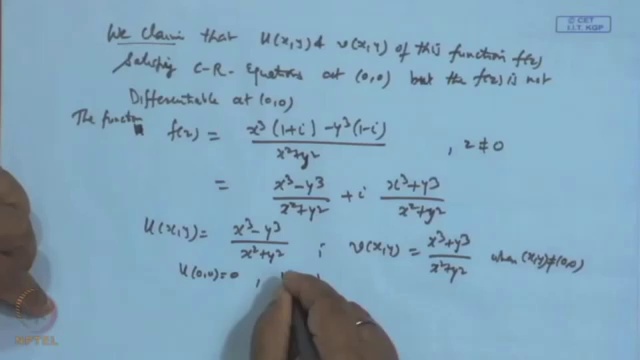 © CET
I.I.T. KGP
We claim that u(x,y) & v(x,y) of this function f(z)
Satisfying C-R-Equations at (0,0) but the f(z) is not
Differentiable at (0,0)
The function f(z) = x³(1+i) - y³(1-i) / x²+y² , z ≠ 0
= x³-y³ / x²+y² + i x³+y³ / x²+y²
u(x,y) = x³-y³ / x²+y² ; v(x,y) = x³+y³ / x²+y² when (x,y)≠(0,0)
u(0,0)=0 ,
NPTEL